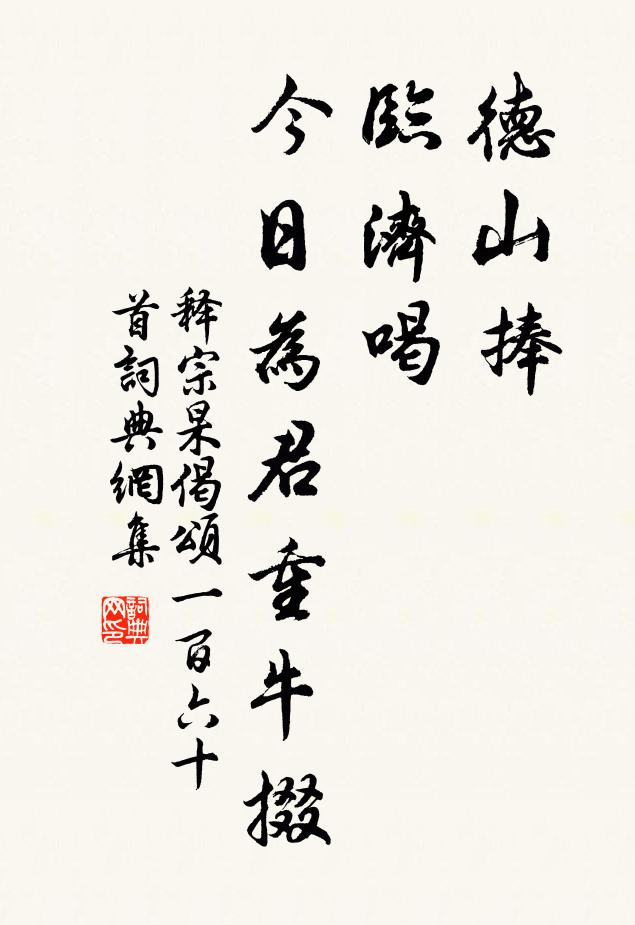 德山捧
臨濟喝
今日為君重牛掇
释宗杲偈頌一百六十
首詞典網集
詞典网印